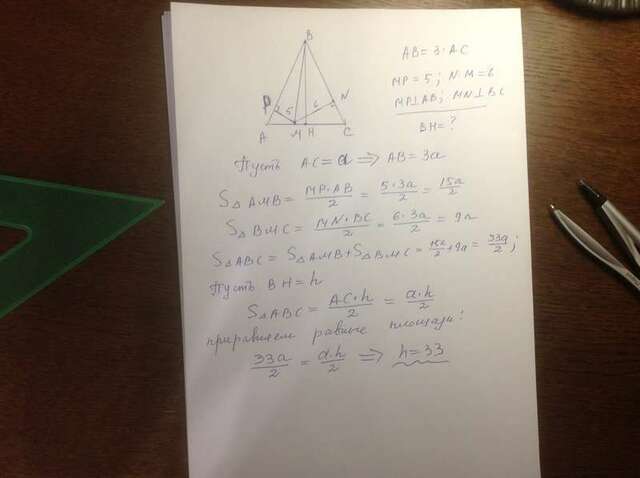 B
P
5
6
N
A
M
H
C
AB = 3·AC
MP = 5; NM = 6
MP⊥AB; MN⊥BC
BH = ?
Пусть AC = a ⟹ AB = 3a
S△AMB = MP·AB/2 = 5·3a/2 = 15a/2
S△BMC = MN·BC/2 = 6·3a/2 = 9a
S△ABC = S△AMB + S△BMC = 15a/2 + 9a = 33a/2;
Пусть BH = h
S△ABC = AC·h/2 = a·h/2
приравняем равные площади:
33a/2 = a·h/2 ⟹ h = 33